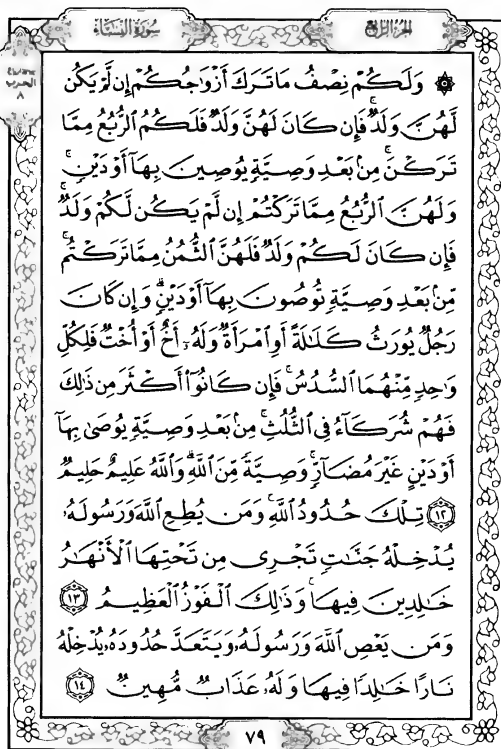 سُورَةُ النِّسَاءِ
الجُزْءُ الرَّابِعُ
الحزب
٨
۞ وَلَكُمْ نِصْفُ مَا تَرَكَ أَزْوَٰجُكُمْ إِن لَّمْ يَكُن
لَّهُنَّ وَلَدٌ ۚ فَإِن كَانَ لَهُنَّ وَلَدٌ فَلَكُمُ الرُّبُعُ مِمَّا
تَرَكْنَ ۚ مِنۢ بَعْدِ وَصِيَّةٍ يُوصِينَ بِهَآ أَوْ دَيْنٍ ۚ
وَلَهُنَّ الرُّبُعُ مِمَّا تَرَكْتُمْ إِن لَّمْ يَكُن لَّكُمْ وَلَدٌ ۚ
فَإِن كَانَ لَكُمْ وَلَدٌ فَلَهُنَّ الثُّمُنُ مِمَّا تَرَكْتُم ۚ
مِّنۢ بَعْدِ وَصِيَّةٍ تُوصُونَ بِهَآ أَوْ دَيْنٍ ۗ وَإِن كَانَ
رَجُلٌ يُورَثُ كَلَٰلَةً أَوِ امْرَأَةٌ وَلَهُۥٓ أَخٌ أَوْ أُخْتٌ فَلِكُلِّ
وَٰحِدٍ مِّنْهُمَا السُّدُسُ ۚ فَإِن كَانُوٓا۟ أَكْثَرَ مِن ذَٰلِكَ
فَهُمْ شُرَكَآءُ فِى الثُّلُثِ ۚ مِنۢ بَعْدِ وَصِيَّةٍ يُوصَىٰ بِهَآ
أَوْ دَيْنٍ غَيْرَ مُضَآرٍّ ۚ وَصِيَّةً مِّنَ اللَّهِ ۗ وَاللَّهُ عَلِيمٌ حَلِيمٌ
﴿١٢﴾ تِلْكَ حُدُودُ اللَّهِ ۚ وَمَن يُطِعِ اللَّهَ وَرَسُولَهُۥ
يُدْخِلْهُ جَنَّٰتٍ تَجْرِى مِن تَحْتِهَا الْأَنْهَٰرُ
خَٰلِدِينَ فِيهَا ۚ وَذَٰلِكَ الْفَوْزُ الْعَظِيمُ ﴿١٣﴾
وَمَن يَعْصِ اللَّهَ وَرَسُولَهُۥ وَيَتَعَدَّ حُدُودَهُۥ يُدْخِلْهُ
نَارًا خَٰلِدًا فِيهَا وَلَهُۥ عَذَابٌ مُّهِينٌ ﴿١٤﴾
٧٩